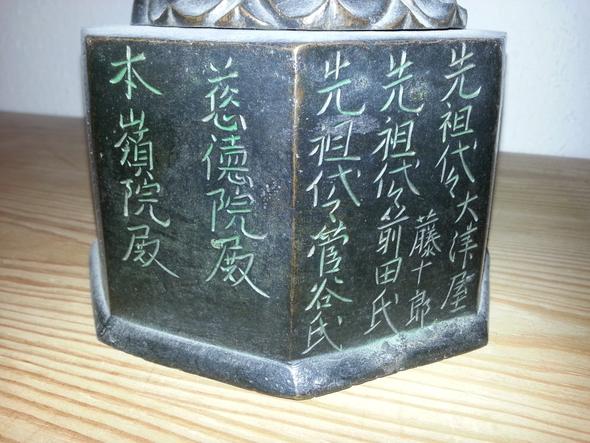 先祖代々大津屋
藤十郎
先祖代々前田氏
先祖代々菅谷氏
慈德院殿
本嶺院殿